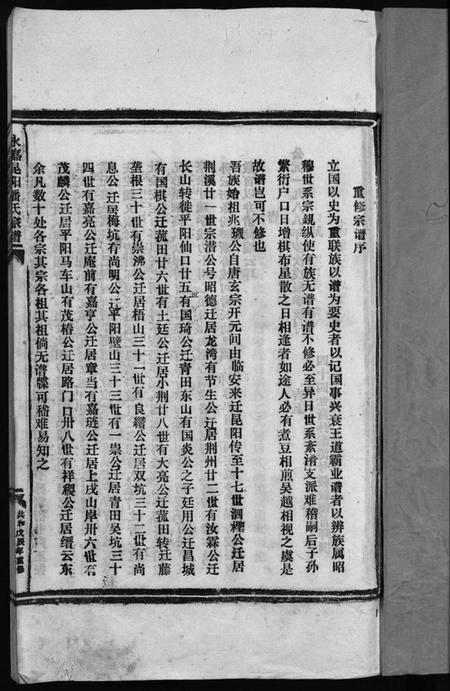 重修宗谱序
立国以史为重联族以谱为要史者以记国事兴衰王道霸业谱者以辨族属昭
穆世系宗親纵使有族无谱有谱不修必至异日世系紊淆支派难稽嗣后子孙
繁衍户口日增棋布星散之日相逢者如途人必有煮豆相煎吴越相视之虞是
故谱岂可不修也
吾族始祖兆 公自唐玄宗开元间由临安来迁昆阳传至十七世泗 公迁居
荆溪廿一世宗潜公号昭德迁居龙湾有节生公迁居荆州廿二世有汝霖公迁
长山转徙平阳仙口廿五世有国琦公迁青田东山有国炎公之子廷用公迁昌城
有国棋公迁孤田廿六世有士廷公迁居小荆廿八世有大亮公迁孤田转迁藤
垄根三十世有崇沸公迁居梧山三十一世有良缙公迁居双坑三十二世有尚
息公迁居梅坑有尚明公迁平阳壁山三十三世有一崇公迁居青田吴坑三十
四世有嘉亮公迁庵前有嘉亨公迁居章当有嘉琏公迁居上戌山岸卅六世有
茂麟公迁居平阳马车山有茂椿公迁居路门口卅八世有祥 公迁居缙云东
余凡数十处各宗其宗各祖其祖倘无谱牒可稽难易知之
永嘉昆阳潘氏宗谱
共和戊辰年重修